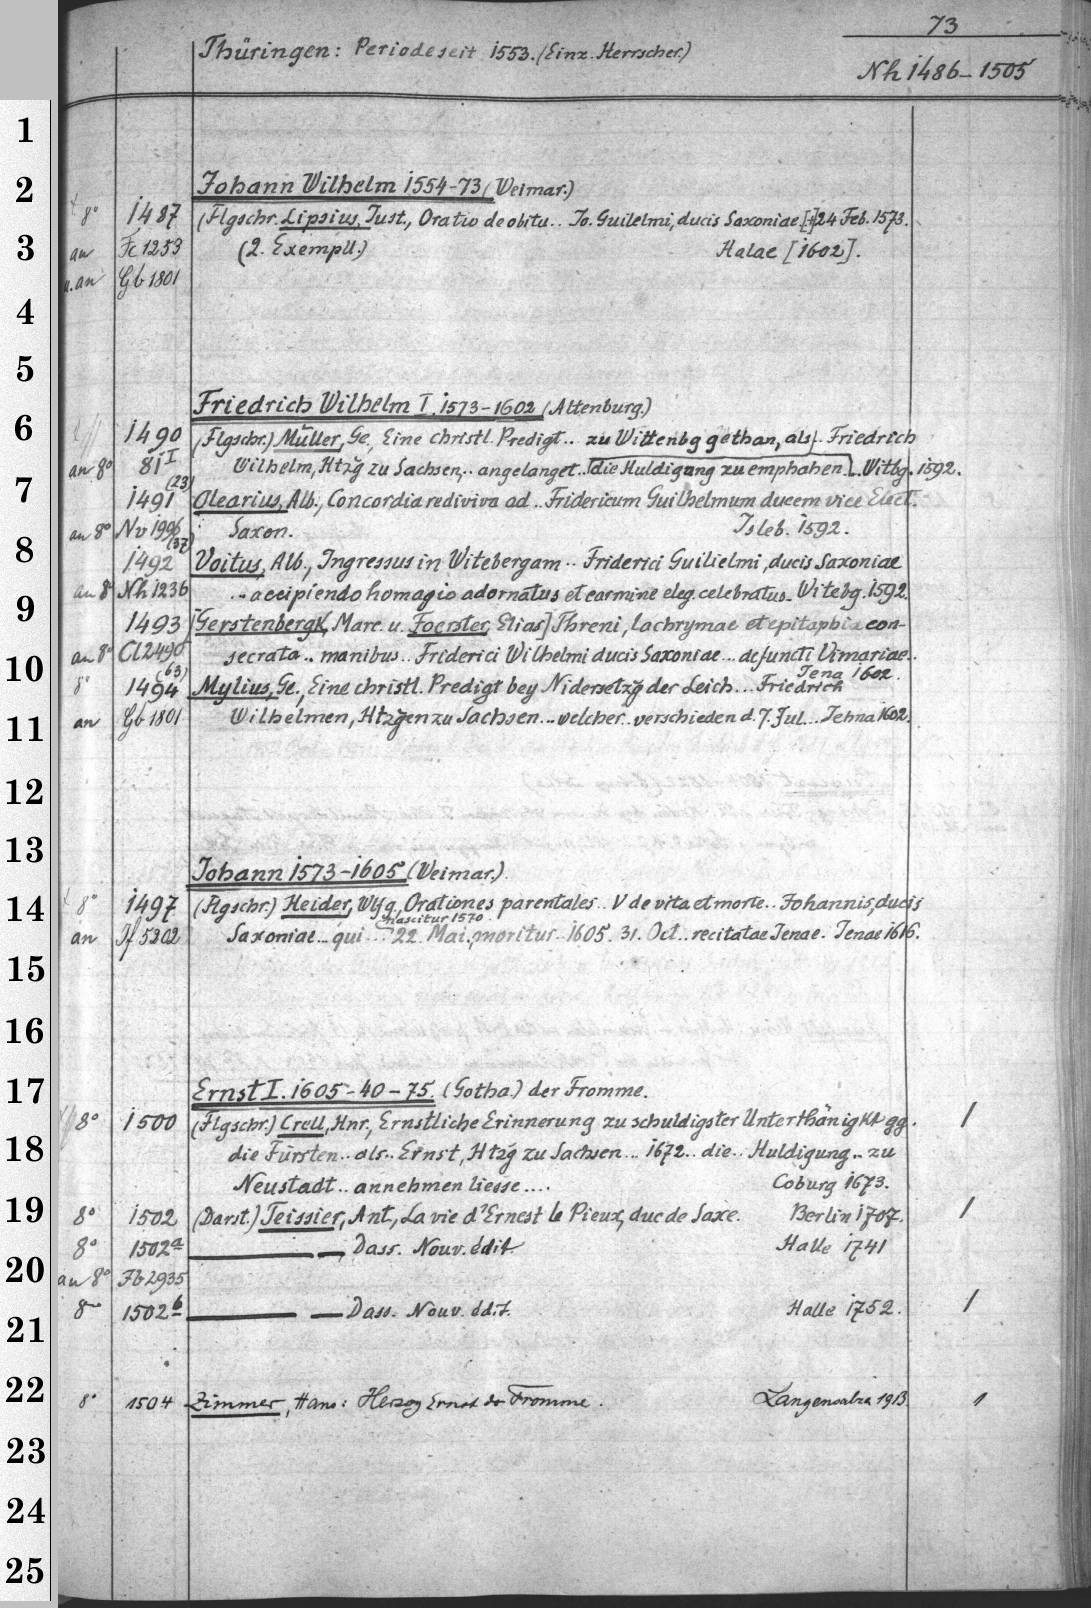 73
Thüringen: Periode seit 1553. (Einz. Herrscher.)
Nh 1486–1505
1
2
3
4
5
6
7
8
9
10
11
12
13
14
15
16
17
18
19
20
21
22
23
24
25
Johann Wilhelm 1554–73 (Weimar.)
8° 1487 (Flgschr. Lipsius, Just., Oratio de obitu.. Jo. Guilelmi, ducis Saxoniae [+] 24 Feb. 1573.
an Fc 1253 (2. Exempll.) Halae [1602].
u. an Gb 1801
Friedrich Wilhelm I. 1573–1602 (Altenburg.)
1490 (Flgschr.) Müller, Ge, Eine christl. Predigt.. zu Wittenbg gethan, als.. Friedrich
an 8° 81 I Wilhelm, Htzg zu Sachsen,.. angelanget.. die Huldigung zu emphahen. Witbg. 1592.
(23)
1491 Olearius, Alb., Concordia rediviva ad.. Fridericum Guilhelmum ducem vice Elect.
an 8° Nv 1996 Saxon. Isleb. 1592.
(37)
1492 Voitus, Alb., Ingressus in Witebergam.. Friderici Guilielmi, ducis Saxoniae
an 8° Nh 1236 .. accipiendo homagio adornatus et carmine eleg. celebratus. Witebg. 1592.
1493 [Gerstenbergk, Marc. u. Foerster, Elias] Threni, lachrymae et epitaphia con-
an 8° Cl 2490 secrata.. manibus.. Friderici Wilhelmi ducis Saxoniae... defuncti Vimariae..
(63) Jena 1602.
8° 1494 Mylius, Ge., Eine christl. Predigt bey Nidersetzg der Leich... Friedrich
an Gb 1801 Wilhelmen, Htzgen zu Sachsen... welcher.. verschieden d. 7. Jul... Jehna 1602.
Johann 1573–1605 (Weimar.)
8° 1497 (Flgschr.) Heider, Wfg, Orationes parentales.. V de vita et morte.. Johannis, ducis
nascitur 1570
an Jf 5302 Saxoniae... qui... 22. Mai., moritur.. 1605. 31. Oct.. recitatae Jenae. Jenae 1616.
Ernst I. 1605–40–75. (Gotha.) der Fromme.
8° 1500 (Flgschr.) Crell, Hnr., Ernstliche Erinnerung zu schuldigster Unterthänigkt gg. 1
die Fürsten.. als.. Ernst, Htzg zu Sachsen... 1672.. die.. Huldigung.. zu
Neustadt.. annehmen liesse.... Coburg 1673.
8° 1502 (Darst.) Teissier, Ant., La vie d'Ernest le Pieux, duc de Saxe. Berlin 1707. 1
8° 1502a ——— — Dass. Nouv. édit. Halle 1741
an 8° Fb 2935
8° 1502b ——— — Dass. Nouv. édit. Halle 1752. 1
8° 1504 Zimmer, Hans: Herzog Ernst der Fromme. Langensalza 1913. 1